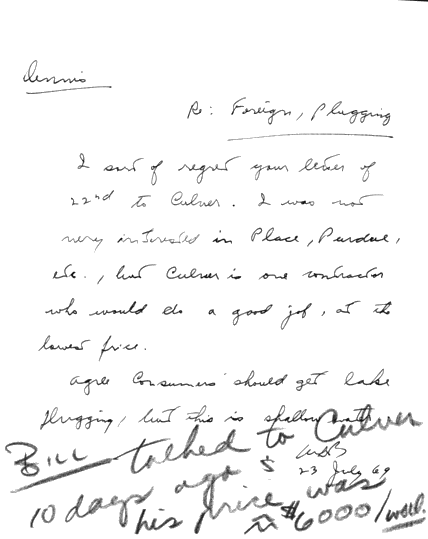 Dennis
Re: Foreign, Plugging
I sort of regret your letter of
22nd to Culver. I was not
very interested in Place, Purdue,
etc., but Culver is one contractor
who would do a good job, at the
lowest price.
Agree Consumers should get lake
plugging, but this is shallow
23 July 69
Bill talked to Culver
10 days ago &
his price was
$6000/well.